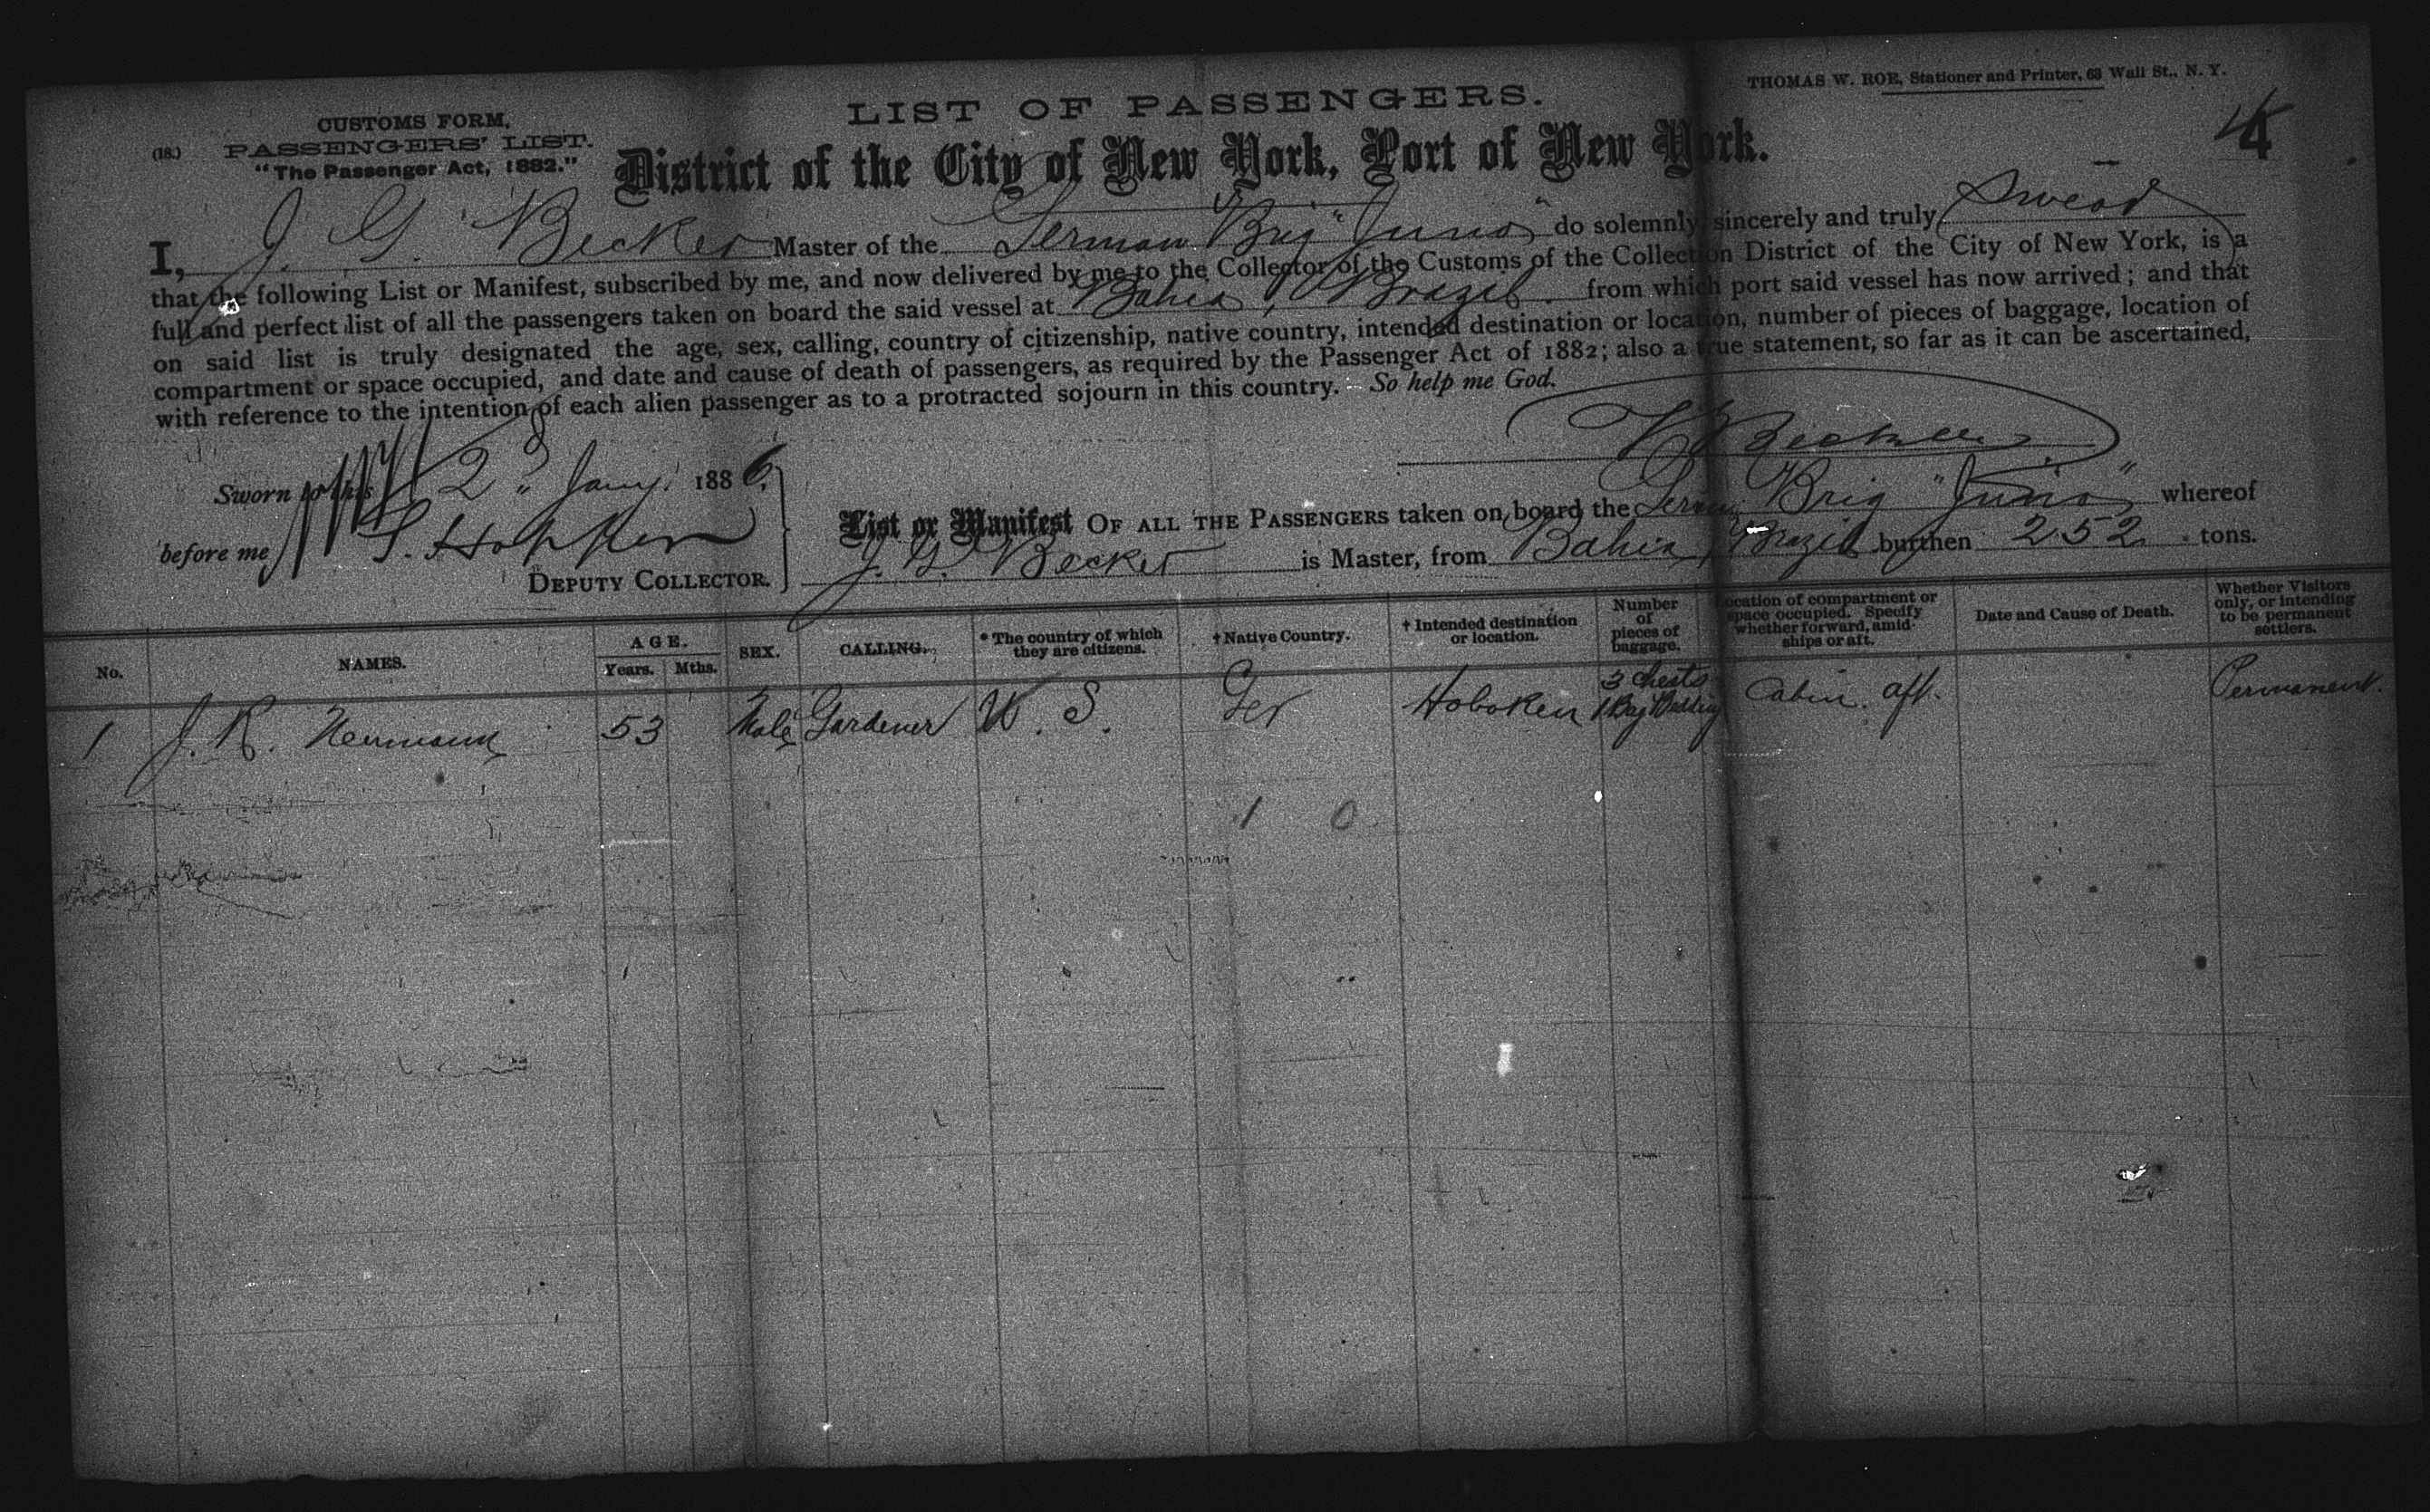 THOMAS W. ROE, Stationer and Printer, 63 Wall St., N. Y.
LIST OF PASSENGERS.
4
CUSTOMS FORM,
(18.) PASSENGERS' LIST.
"The Passenger Act, 1882."
District of the City of New York, Port of New York.
I, J. G. Becker Master of the German Brig "Juno" do solemnly sincerely and truly swear
that the following List or Manifest, subscribed by me, and now delivered by me to the Collector of the Customs of the Collection District of the City of New York, is a
full and perfect list of all the passengers taken on board the said vessel at Bahia, Brazil. from which port said vessel has now arrived; and that
on said list is truly designated the age, sex, calling, country of citizenship, native country, intended destination or location, number of pieces of baggage, location of
compartment or space occupied, and date and cause of death of passengers, as required by the Passenger Act of 1882; also a true statement, so far as it can be ascertained,
with reference to the intention of each alien passenger as to a protracted sojourn in this country. So help me God.
Sworn to this 2d Jany. 1886,
before me
DEPUTY COLLECTOR.
List or Manifest OF ALL THE PASSENGERS taken on board the German Brig "Juno" whereof
J. G. Becker is Master, from Bahia, Brazil burthen 252 tons.
No. NAMES. AGE. Years. Mths. SEX. CALLING. * The country of which they are citizens. † Native Country. † Intended destination or location. Number of pieces of baggage. Location of compartment or space occupied. Specify whether forward, amid-ships or aft. Date and Cause of Death. Whether Visitors only, or intending to be permanent settlers.
1 J. R. Neumann 53 Male Gardener U. S. Ger Hoboken 3 chests 1 Bag Bedding Cabin. aft. Permanent.
1 0